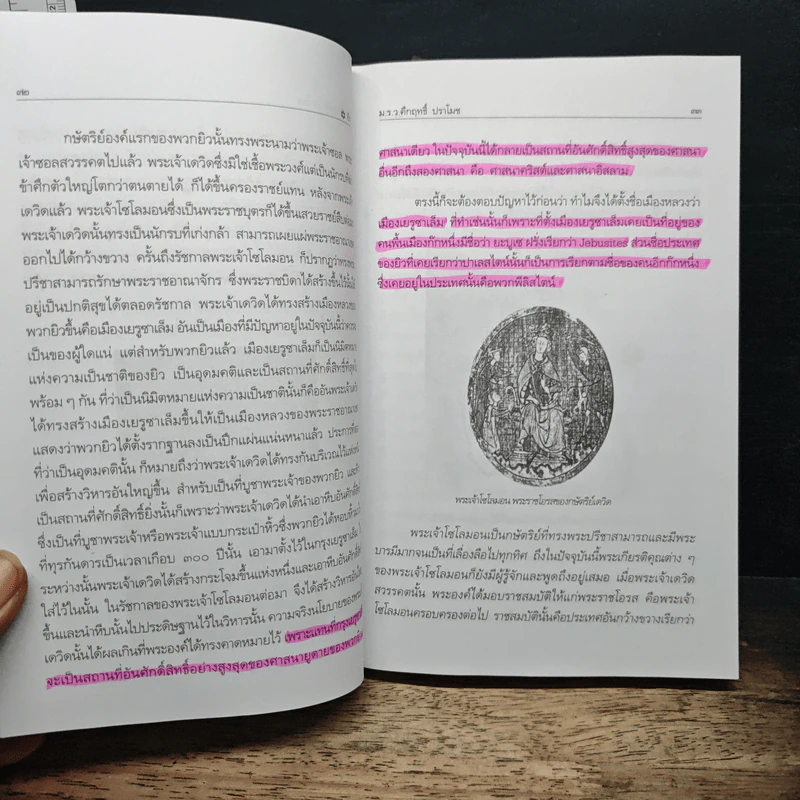 ๓๒
กษัตริย์องค์แรกของพวกยิวนั้นทรงพระนามว่าพระเจ้าซอล
เจ้าซอลสวรรคตไปแล้ว พระเจ้าเดวิดซึ่งมิใช่เชื้อพระวงศ์แต่เป็นนักรบ
ข้าศึกตัวใหญ่โตกว่าตนตายได้ ก็ได้ขึ้นครองราชย์แทน หลังจาก
เดวิดแล้ว พระเจ้าโซโลมอนซึ่งเป็นพระราชบุตรก็ได้ขึ้นเสวยราชย์
พระเจ้าเดวิดนั้นทรงเป็นนักรบที่เก่งกล้า สามารถเผยแผ่พระราชอาณา
ออกไปได้กว้างขวาง ครั้นถึงรัชกาลพระเจ้าโซโลมอน ก็ปรากฏว่า
ปรีชาสามารถรักษาพระราชอาณาจักร ซึ่งพระราชบิดาได้สร้างขึ้นไว้
อยู่เป็นปกติสุขได้ตลอดรัชกาล พระเจ้าเดวิดได้ทรงสร้างเมืองหลวง
พวกยิวขึ้นคือเมืองเยรูซาเล็ม อันเป็นเมืองที่มีปัญหาอยู่ในปัจจุบันนี้ว่า
เป็นของผู้ใดแน่ แต่สำหรับพวกยิวแล้ว เมืองเยรูซาเล็มก็เป็นนิมิต
แห่งความเป็นชาติของยิว เป็นอุดมคติและเป็นสถานที่ศักดิ์สิทธิ์ที่
พร้อม ๆ กัน ที่ว่าเป็นนิมิตหมายแห่งความเป็นชาตินั้นก็คืออัน
ได้ทรงสร้างเมืองเยรูซาเล็มขึ้นให้เป็นเมืองหลวงของพระราชอาณา
แสดงว่าพวกยิวได้ตั้งรากฐานลงเป็นปึกแผ่นแน่นหนาแล้ว ประการ
ที่ว่าเป็นอุดมคตินั้น ก็หมายถึงว่าพระเจ้าเดวิดได้ทรงกันบริเวณไว้
เพื่อสร้างวิหารอันใหญ่ขึ้น สำหรับเป็นที่บูชาพระเจ้าของพวกยิว
เป็นสถานที่ศักดิ์สิทธิ์ยิ่งนั้นก็เพราะว่าพระเจ้าเดวิดได้นำเอาหีบอันศักดิ์
ซึ่งเป็นที่บูชาพระเจ้าหรือพระเจ้าแบบกระเป๋าหิ้วซึ่งพวกยิวได้
ที่ทุรกันดารเป็นเวลาเกือบ ๓๐๐ ปีนั้น เอามาตั้งไว้ในกรุงเยรูซาเล็ม
ระหว่างนั้นพระเจ้าเดวิดได้สร้างกระโจมขึ้นแห่งหนึ่งและเอาหีบอันศักดิ์
ใส่ไว้ในนั้น ในรัชกาลของพระเจ้าโซโลมอนต่อมา จึงได้สร้างวิหาร
ขึ้นและนำหีบนั้นไปประดิษฐานไว้ในวิหารนั้น ความจริงนโยบายของ
เดวิดนั้นได้ผลเกินที่พระองค์ได้ทรงคาดหมายไว้ เพราะแทนที่กรุง
จะเป็นสถานที่อันศักดิ์สิทธิ์อย่างสูงสุดของศาสนายูดายของพวก
ม.ร.ว.คึกฤทธิ์ ปราโมช
๓๓
ศาสนาเดียว ในปัจจุบันนี้ได้กลายเป็นสถานที่อันศักดิ์สิทธิ์สูงสุดของศาสนา
อื่นอีกถึงสองศาสนา คือ ศาสนาคริสต์และศาสนาอิสลาม
ตรงนี้ก็จะต้องตอบปัญหาไว้ก่อนว่า ทำไมจึงได้ตั้งชื่อเมืองหลวงว่า
เมืองเยรูซาเล็ม ที่ทำเช่นนั้นก็เพราะที่ตั้งเมืองเยรูซาเล็มเคยเป็นที่อยู่ของ
คนพื้นเมืองก๊กหนึ่งมีชื่อว่า ยะบูเซ ฝรั่งเรียกว่า Jebusites ส่วนชื่อประเทศ
ของยิวที่เคยเรียกว่าปาเลสไตน์นั้นก็เป็นการเรียกตามชื่อของคนอีกก๊กหนึ่ง
ซึ่งเคยอยู่ในประเทศนั้นคือพวกพีลิสไตน์
พระเจ้าโซโลมอน พระราชโอรสของกษัตริย์เดวิด
พระเจ้าโซโลมอนเป็นกษัตริย์ที่ทรงพระปรีชาสามารถและมีพระ
บารมีมากจนเป็นที่เลื่องลือไปทุกทิศ ถึงในปัจจุบันนี้พระเกียรติคุณต่าง ๆ
ของพระเจ้าโซโลมอนก็ยังมีผู้รู้จักและพูดถึงอยู่เสมอ เมื่อพระเจ้าเดวิด
สวรรคตนั้น พระองค์ได้มอบราชสมบัติให้แก่พระราชโอรส คือพระเจ้า
โซโลมอนครอบครองต่อไป ราชสมบัตินั้นคือประเทศอันกว้างขวางเรียกว่า